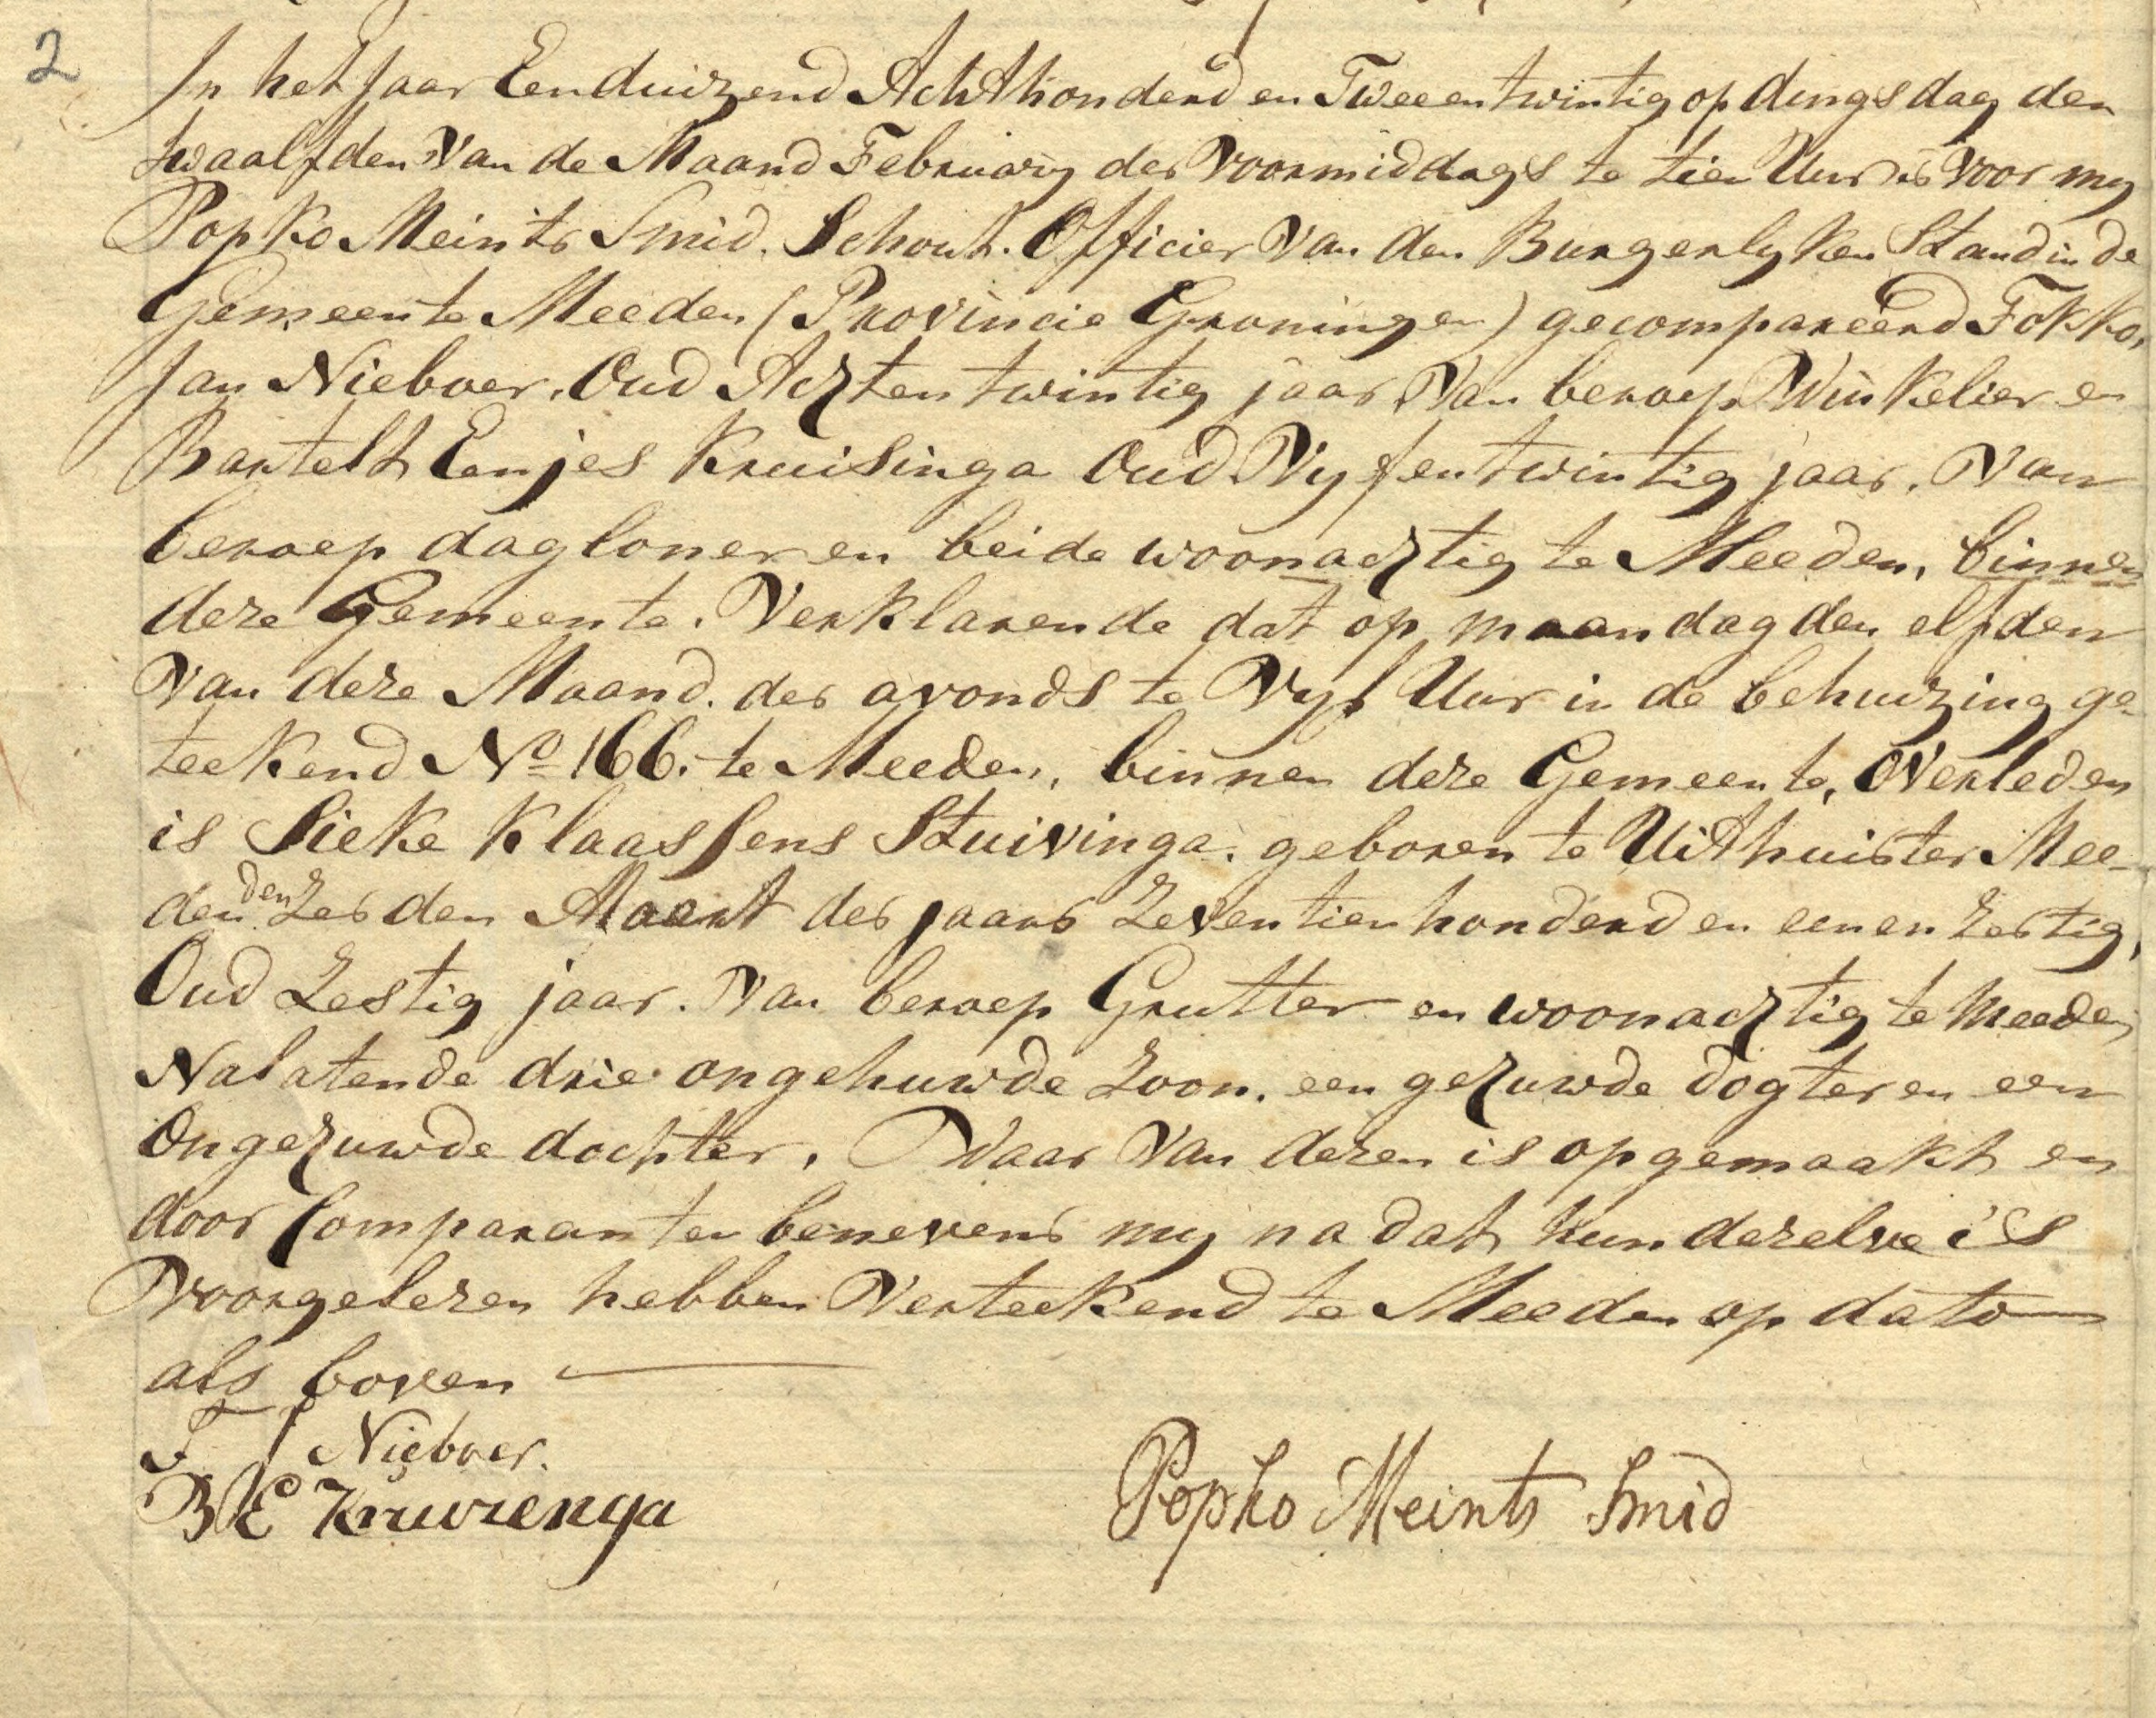 2
In het Jaar Eenduizend Achthonderd en Twee en twintig op dingsdag den
twaalfden Van de Maand February des Voormiddags te tien Uur is Voor my
Popko Meints Smid. Schout. Officier Van den Burgerlyken Stand in de
Gemeente Meeden (Provincie Groningen) gecompareerd Fokko,
Jan Nieboer. Oud Achtentwintig jaar Van beroep Winkelier en
Bartelt Eenjes Kruisinga Oud Vyfentwintig jaar. Van
beroep dagloner en beide woonachtig te Meeden, binnen
deze Gemeente. Verklarende dat op maandag den elfden
Van deze Maand. des avonds te Vyf Uur in de behuizing ge-
teekend No 166. te Meeden, binnen deze Gemeente, OVerleden
is Sieke Klaassens Stuivinga. geboren te Uithuister Mee-
den den Zesden Maart des jaars Zeventienhonderd en een en Zestig,
Oud Zestig jaar. Van beroep Grutter en woonachtig te Meeden
Nalatende drie ongehuwde Zoon. een gehuwde dogter en een
Ongehuwde dochter, Waar Van dezen is opgemaakt en
door Comparanten benevens my na dat hun dezelve is
Voorgelezen hebben Verteekend te Meeden op dato
als boven
F J Nieboer.
B E Kruizenga
Popko Meints Smid